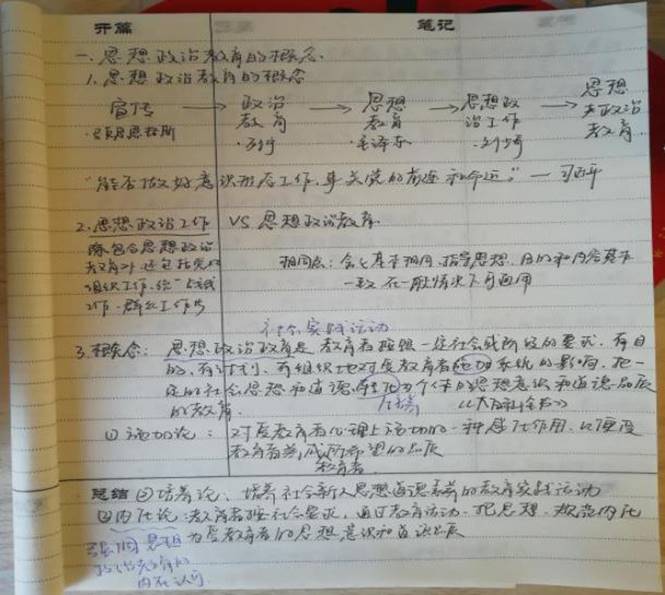 开篇 笔记
一.思想政治教育的概念.
1.思想政治教育的概念
宣传 → 政治教育 → 思想教育 → 思想政治工作 → 思想政治教育
·马克思恩格斯 ·列宁 ·毛泽东 ·刘少奇
"能否做好意识形态工作,事关党的前途和命运。" — 习近平
2.思想政治工作 VS 思想政治教育
除包含思想政治
教育外,还包括党的
组织工作、统一战线
工作、群众工作等
相同点:含义基本相同,指导思想、目的和内容基本
一致 在一般情况下可通用
社会实践活动
3.概念: 思想政治教育是教育者按照一定社会或阶级的要求,有目
的,有计划,有组织地对受教育者施加系统的影响,把一
定的社会思想和道德转化为个体的思想意识和道德品质
的教育. 培养 《大百科全书》
①施加论: 对受教育者心理上施加的一种感化作用,以便使
教育者养成所希望的品质
教育者
总结 ②培养论、培养社会新人思想道德素养的教育实践活动
③内化论:教育者按社会要求,通过教育活动,把思想、规范内化
为受教育者的思想意识和道德品质
强调思想
内在认可